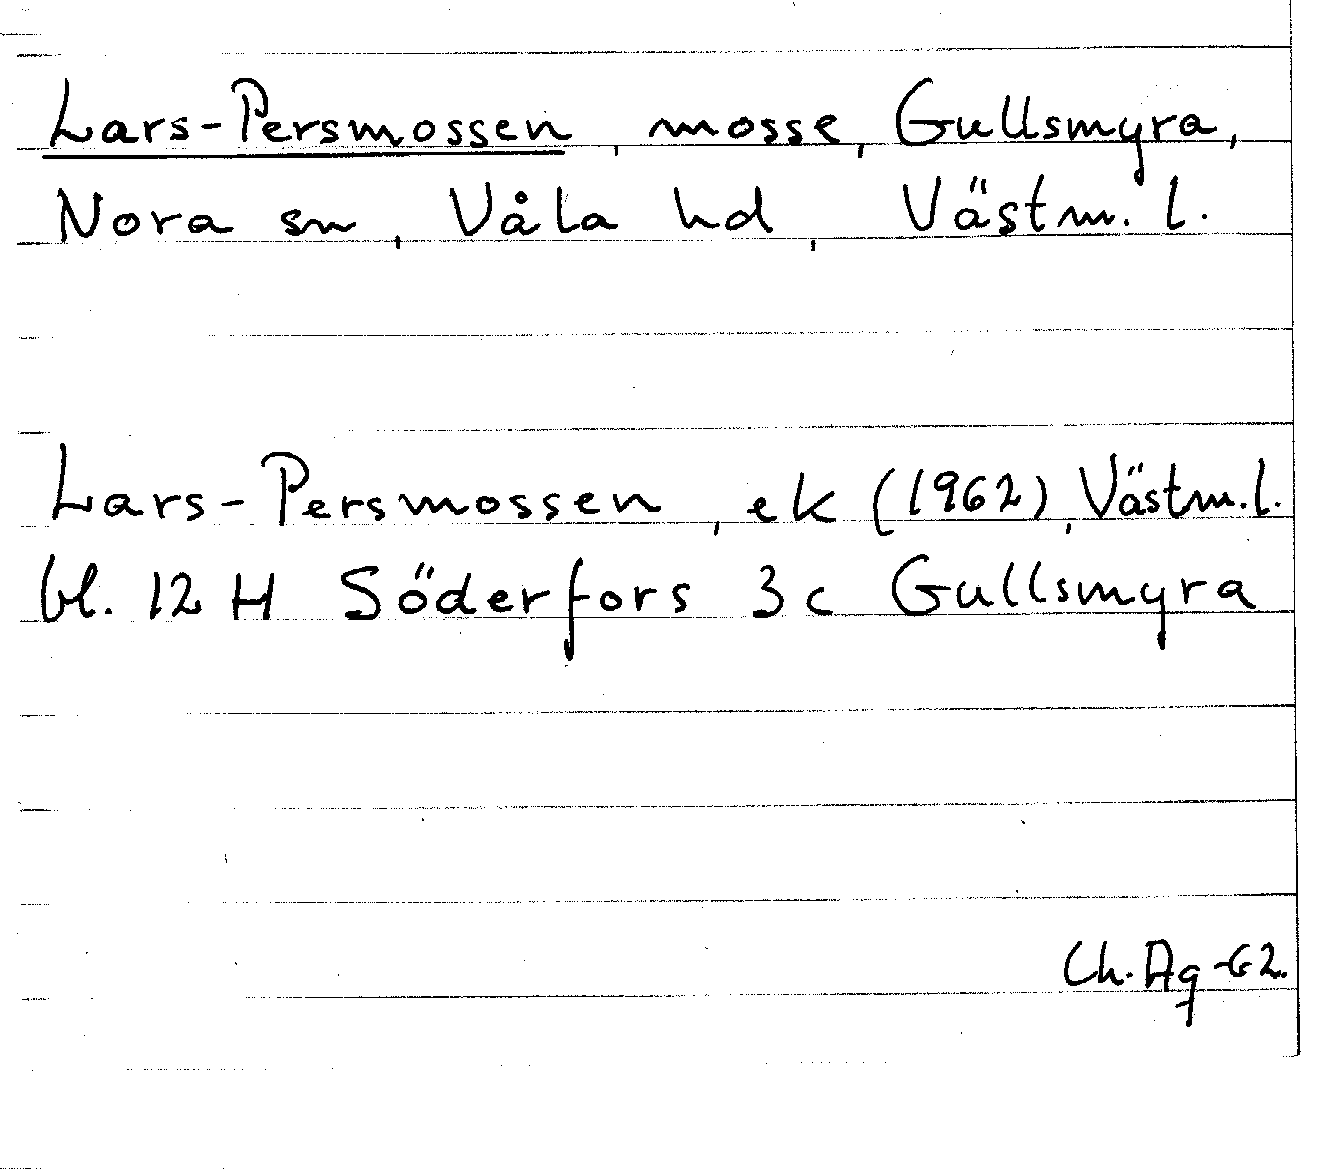 Lars-Persmossen, mosse, Gullsmyra,
Nora sn, Våla hd, Västm. l.
Lars-Persmossen, ek (1962), Västm. l.
bl. 12 H Söderfors 3 c Gullsmyra
Ch. Ag -62.